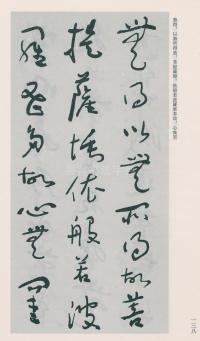 無得以無所得故菩
提薩埵依般若波
羅蜜多故心無罣
無得。以無所得故,菩提薩埵,依般若波羅蜜多故,心無罣
一三八